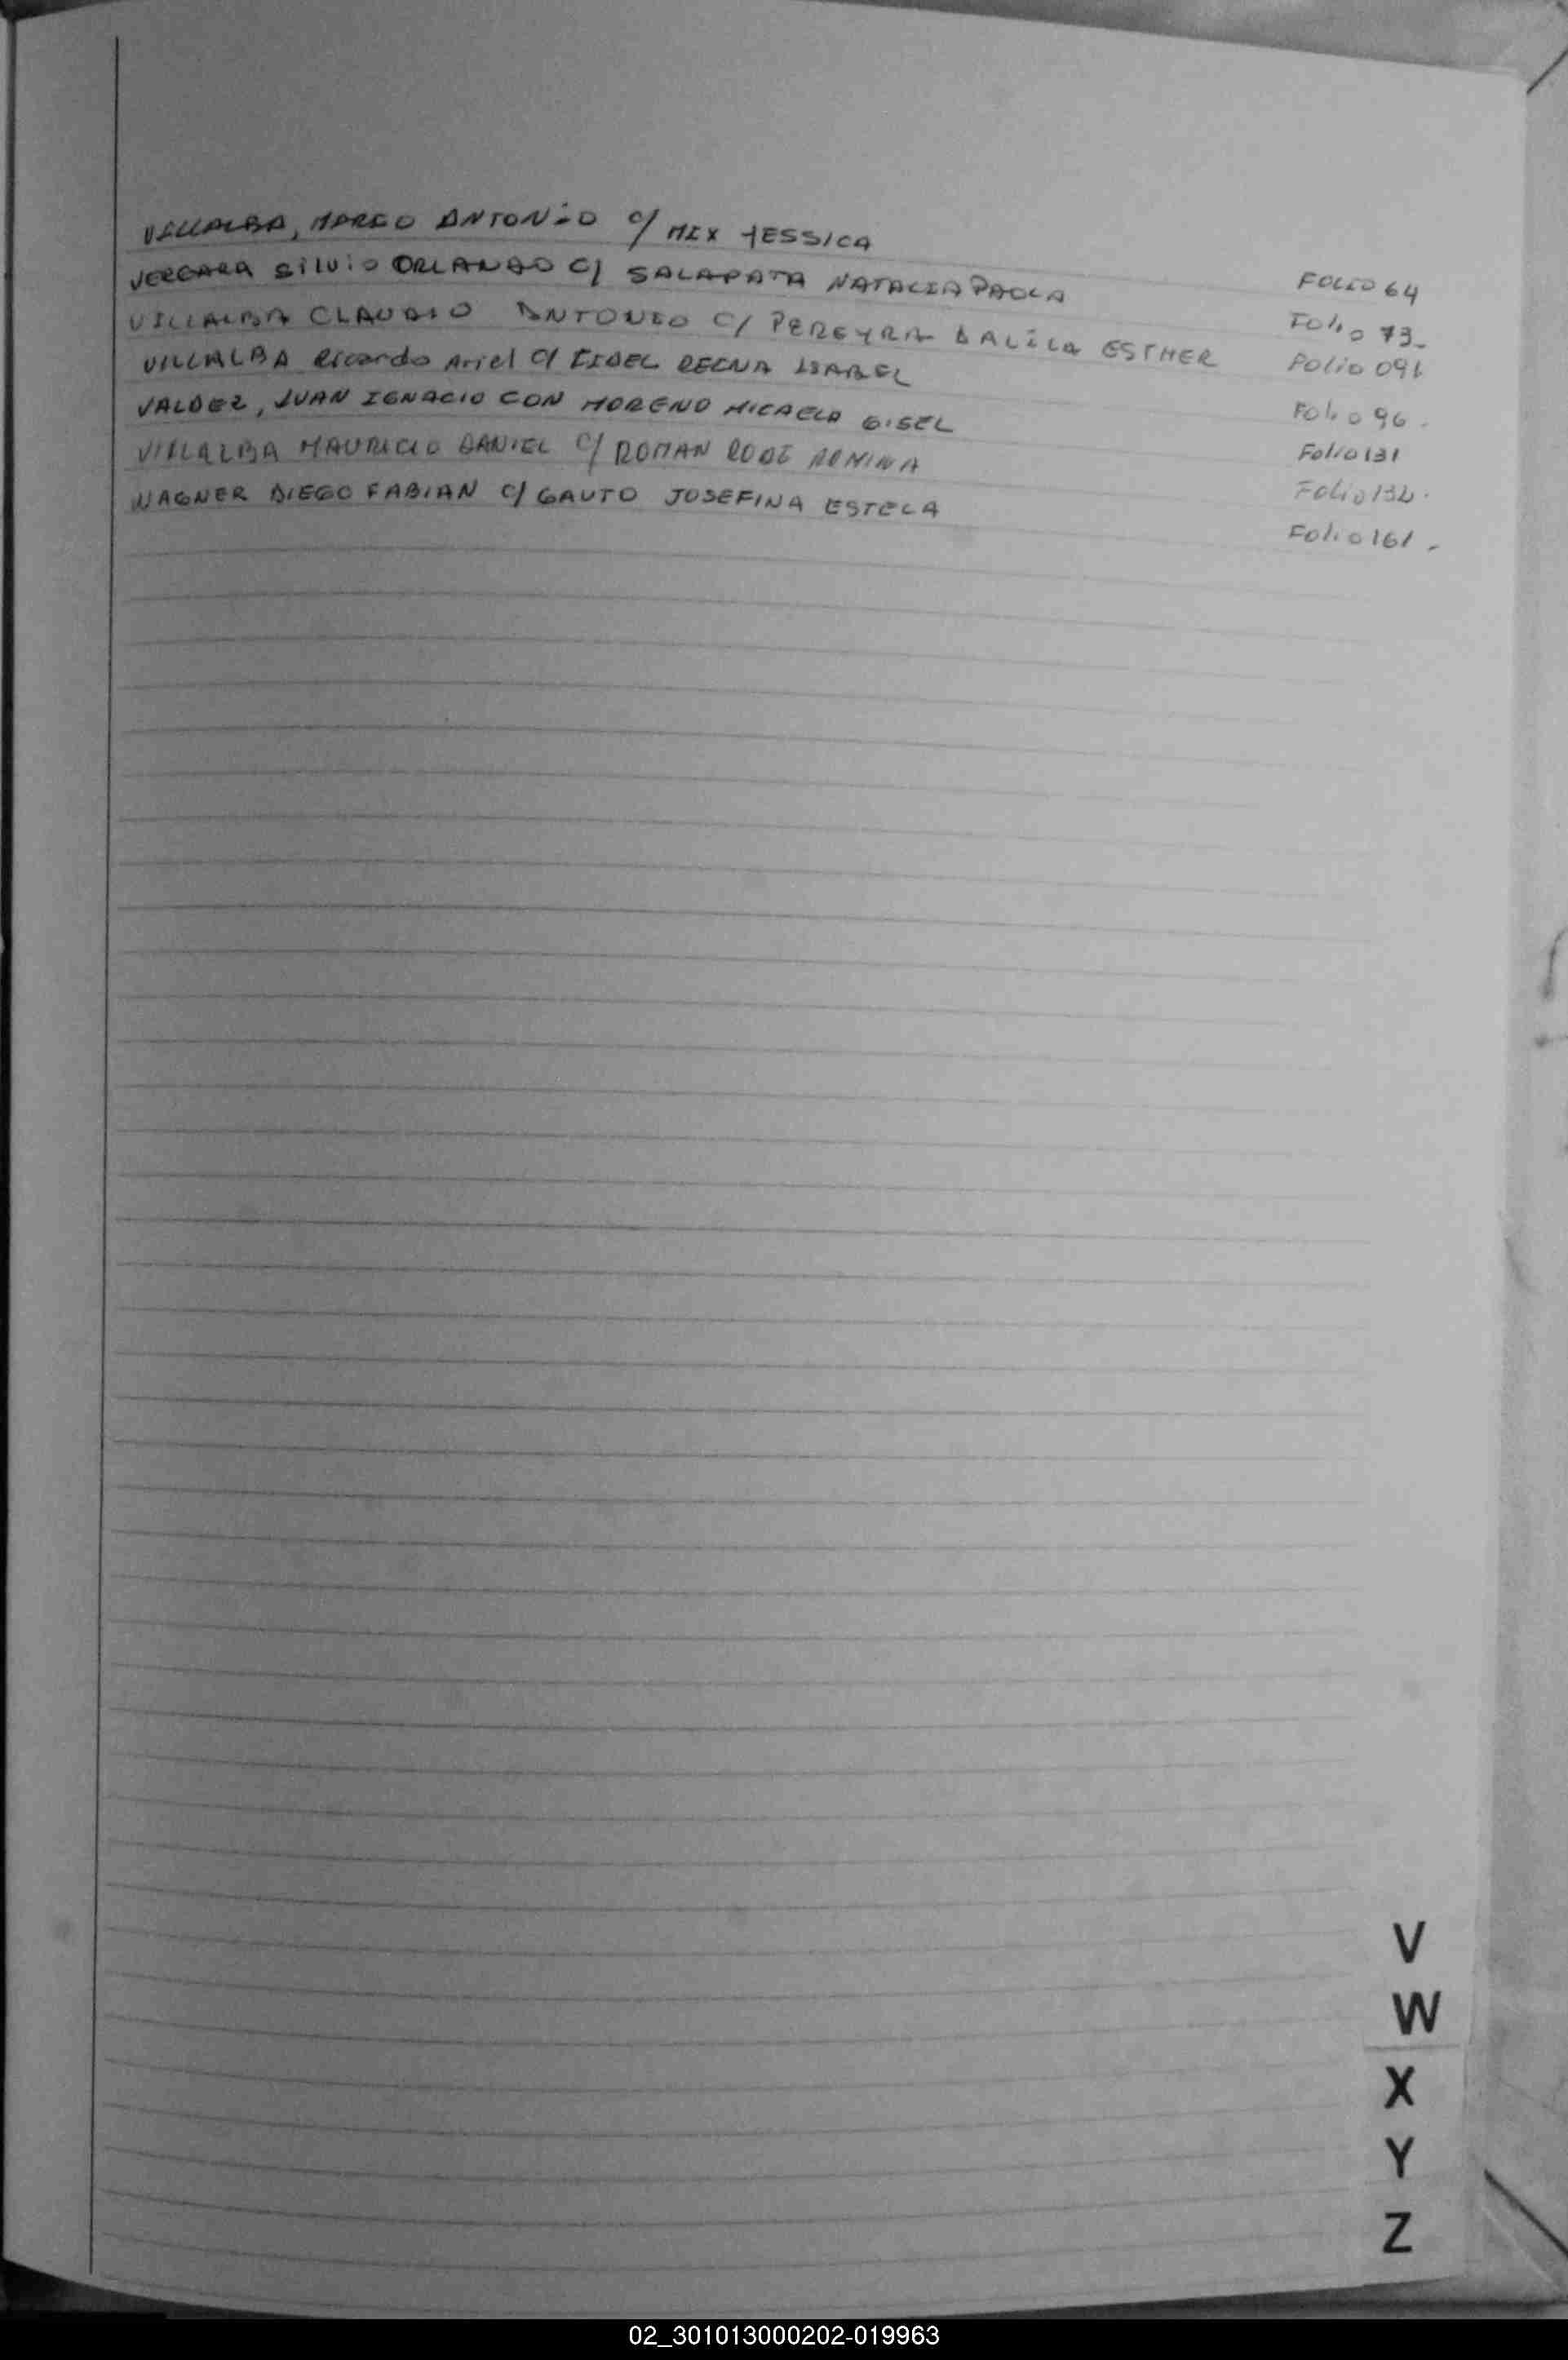 VILLALBA, MARCO ANTONIO c/ MIX YESSICA FOLIO 64
VERGARA SILVIO ORLANDO C/ SALAPATA NATALIA PAOLA Folio 73-
VILLALBA CLAUDIO ANTONIO C/ PEREYRA DALILA ESTHER Folio 091
VILLALBA Ricardo Ariel C/ REINA ISABEL Folio 96.
VALDEZ, JUAN IGNACIO CON MORENO MICAELA GISEL Folio 131
VILLALBA MAURICIO DANIEL C/ ROMAN ROMINA Folio 132.
WAGNER DIEGO FABIAN C/ GAUTO JOSEFINA ESTELA Folio 161-
V
W
X
Y
Z
02_301013000202-019963